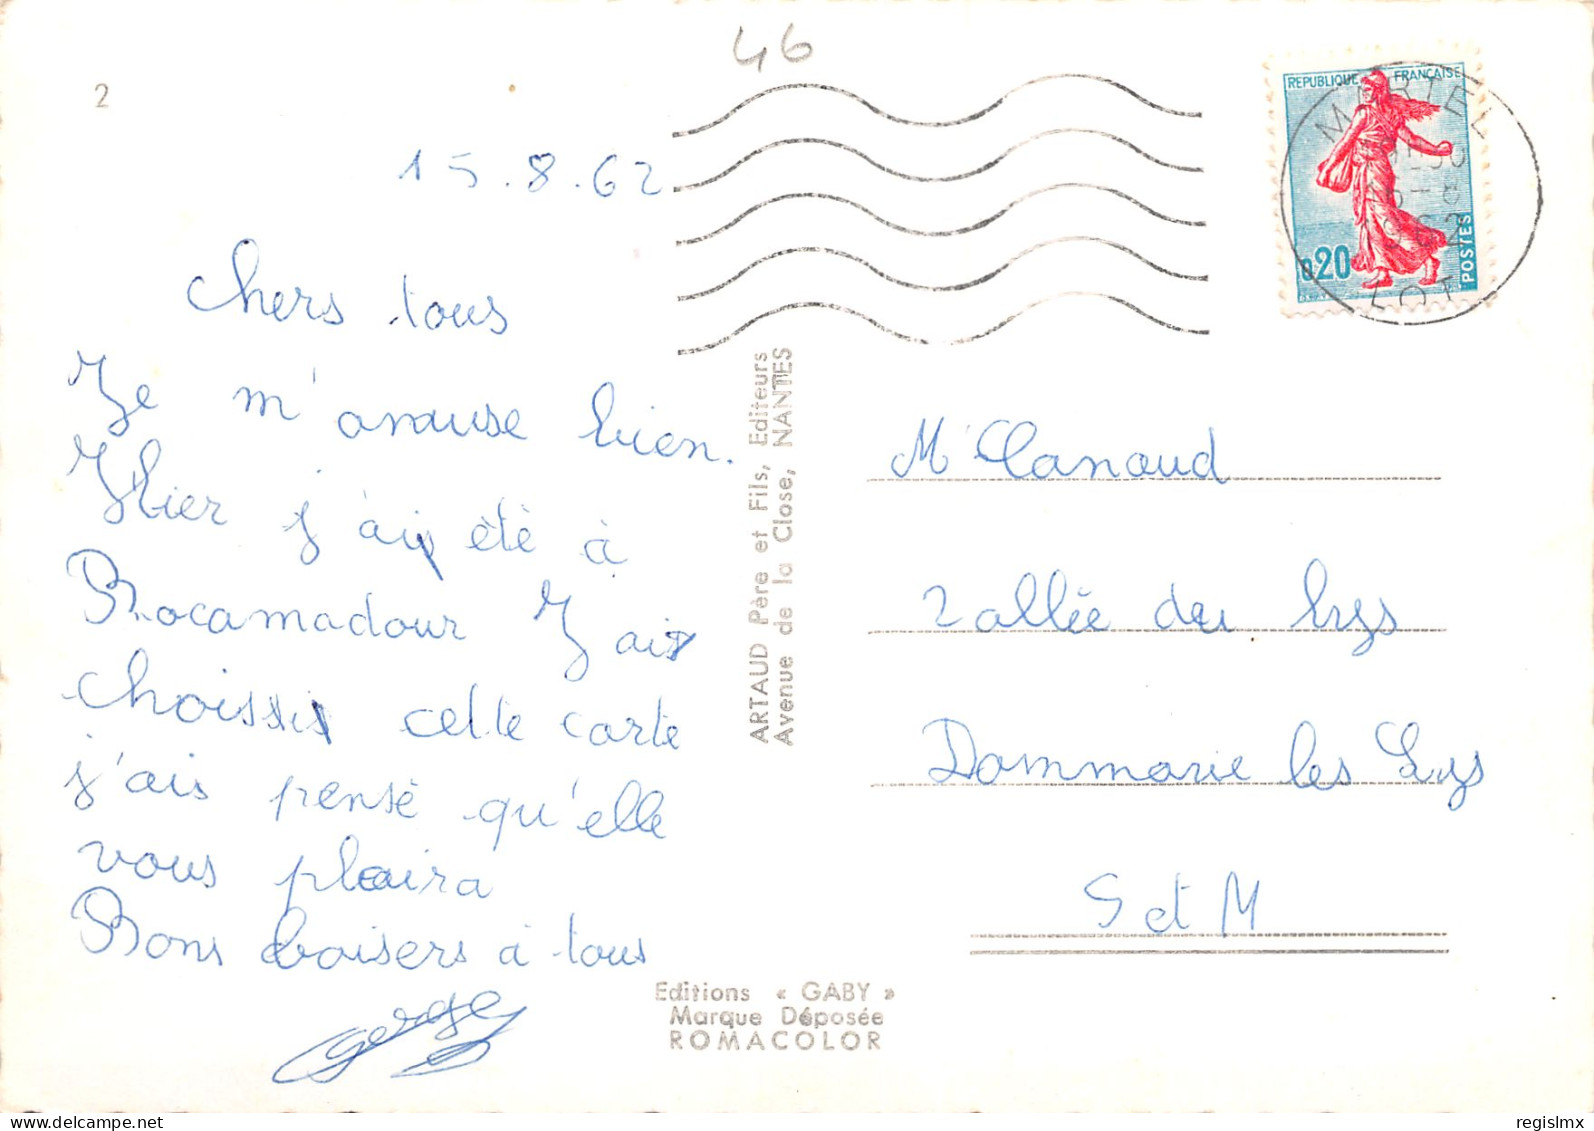 46
2
15.8.62
Chers tous
Je m'amuse bien.
Hier j'ai été à
Rocamadour J'ais
choissis cette carte
j'ais pensé qu'elle
vous plaira
Bons baisers à tous
ARTAUD Père et Fils, Editeurs
Avenue de la Close, NANTES
Editions « GABY »
Marque Déposée
ROMACOLOR
REPUBLIQUE FRANÇAISE
0,20
POSTES
MARTEL
LOT
M Canaud
2 allée du lys
Dammarie les Lys
S et M
regislmx